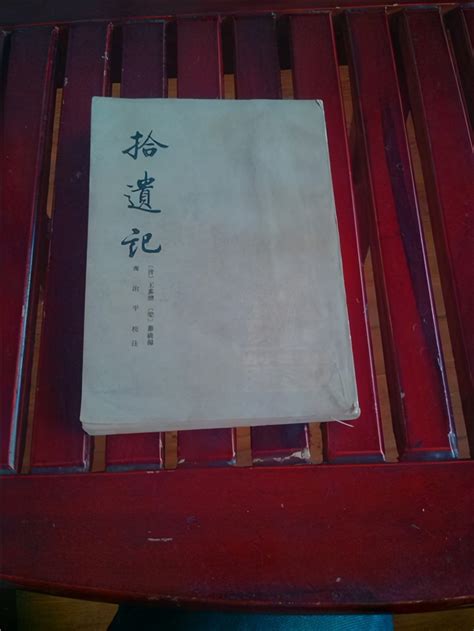 拾遺記
〔晋〕王嘉撰 〔梁〕蕭綺録
齊治平校注